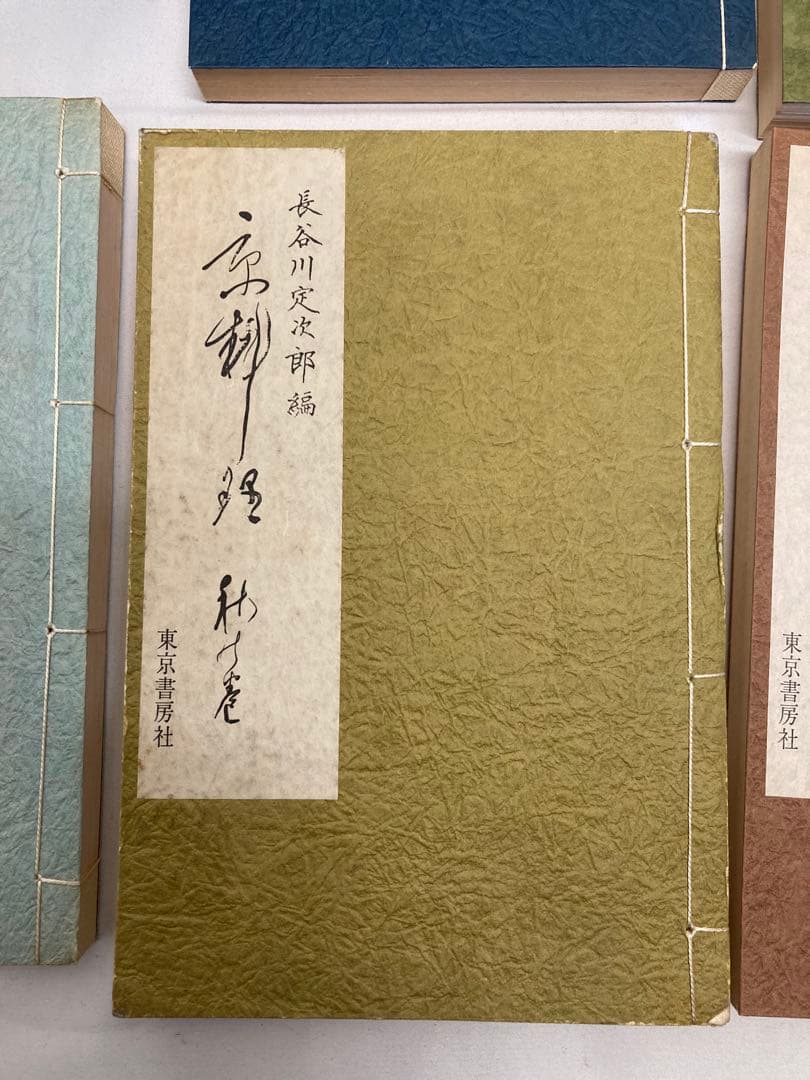 長谷川定次郎編
京料理 秋の巻
東京書房社
東京書房社